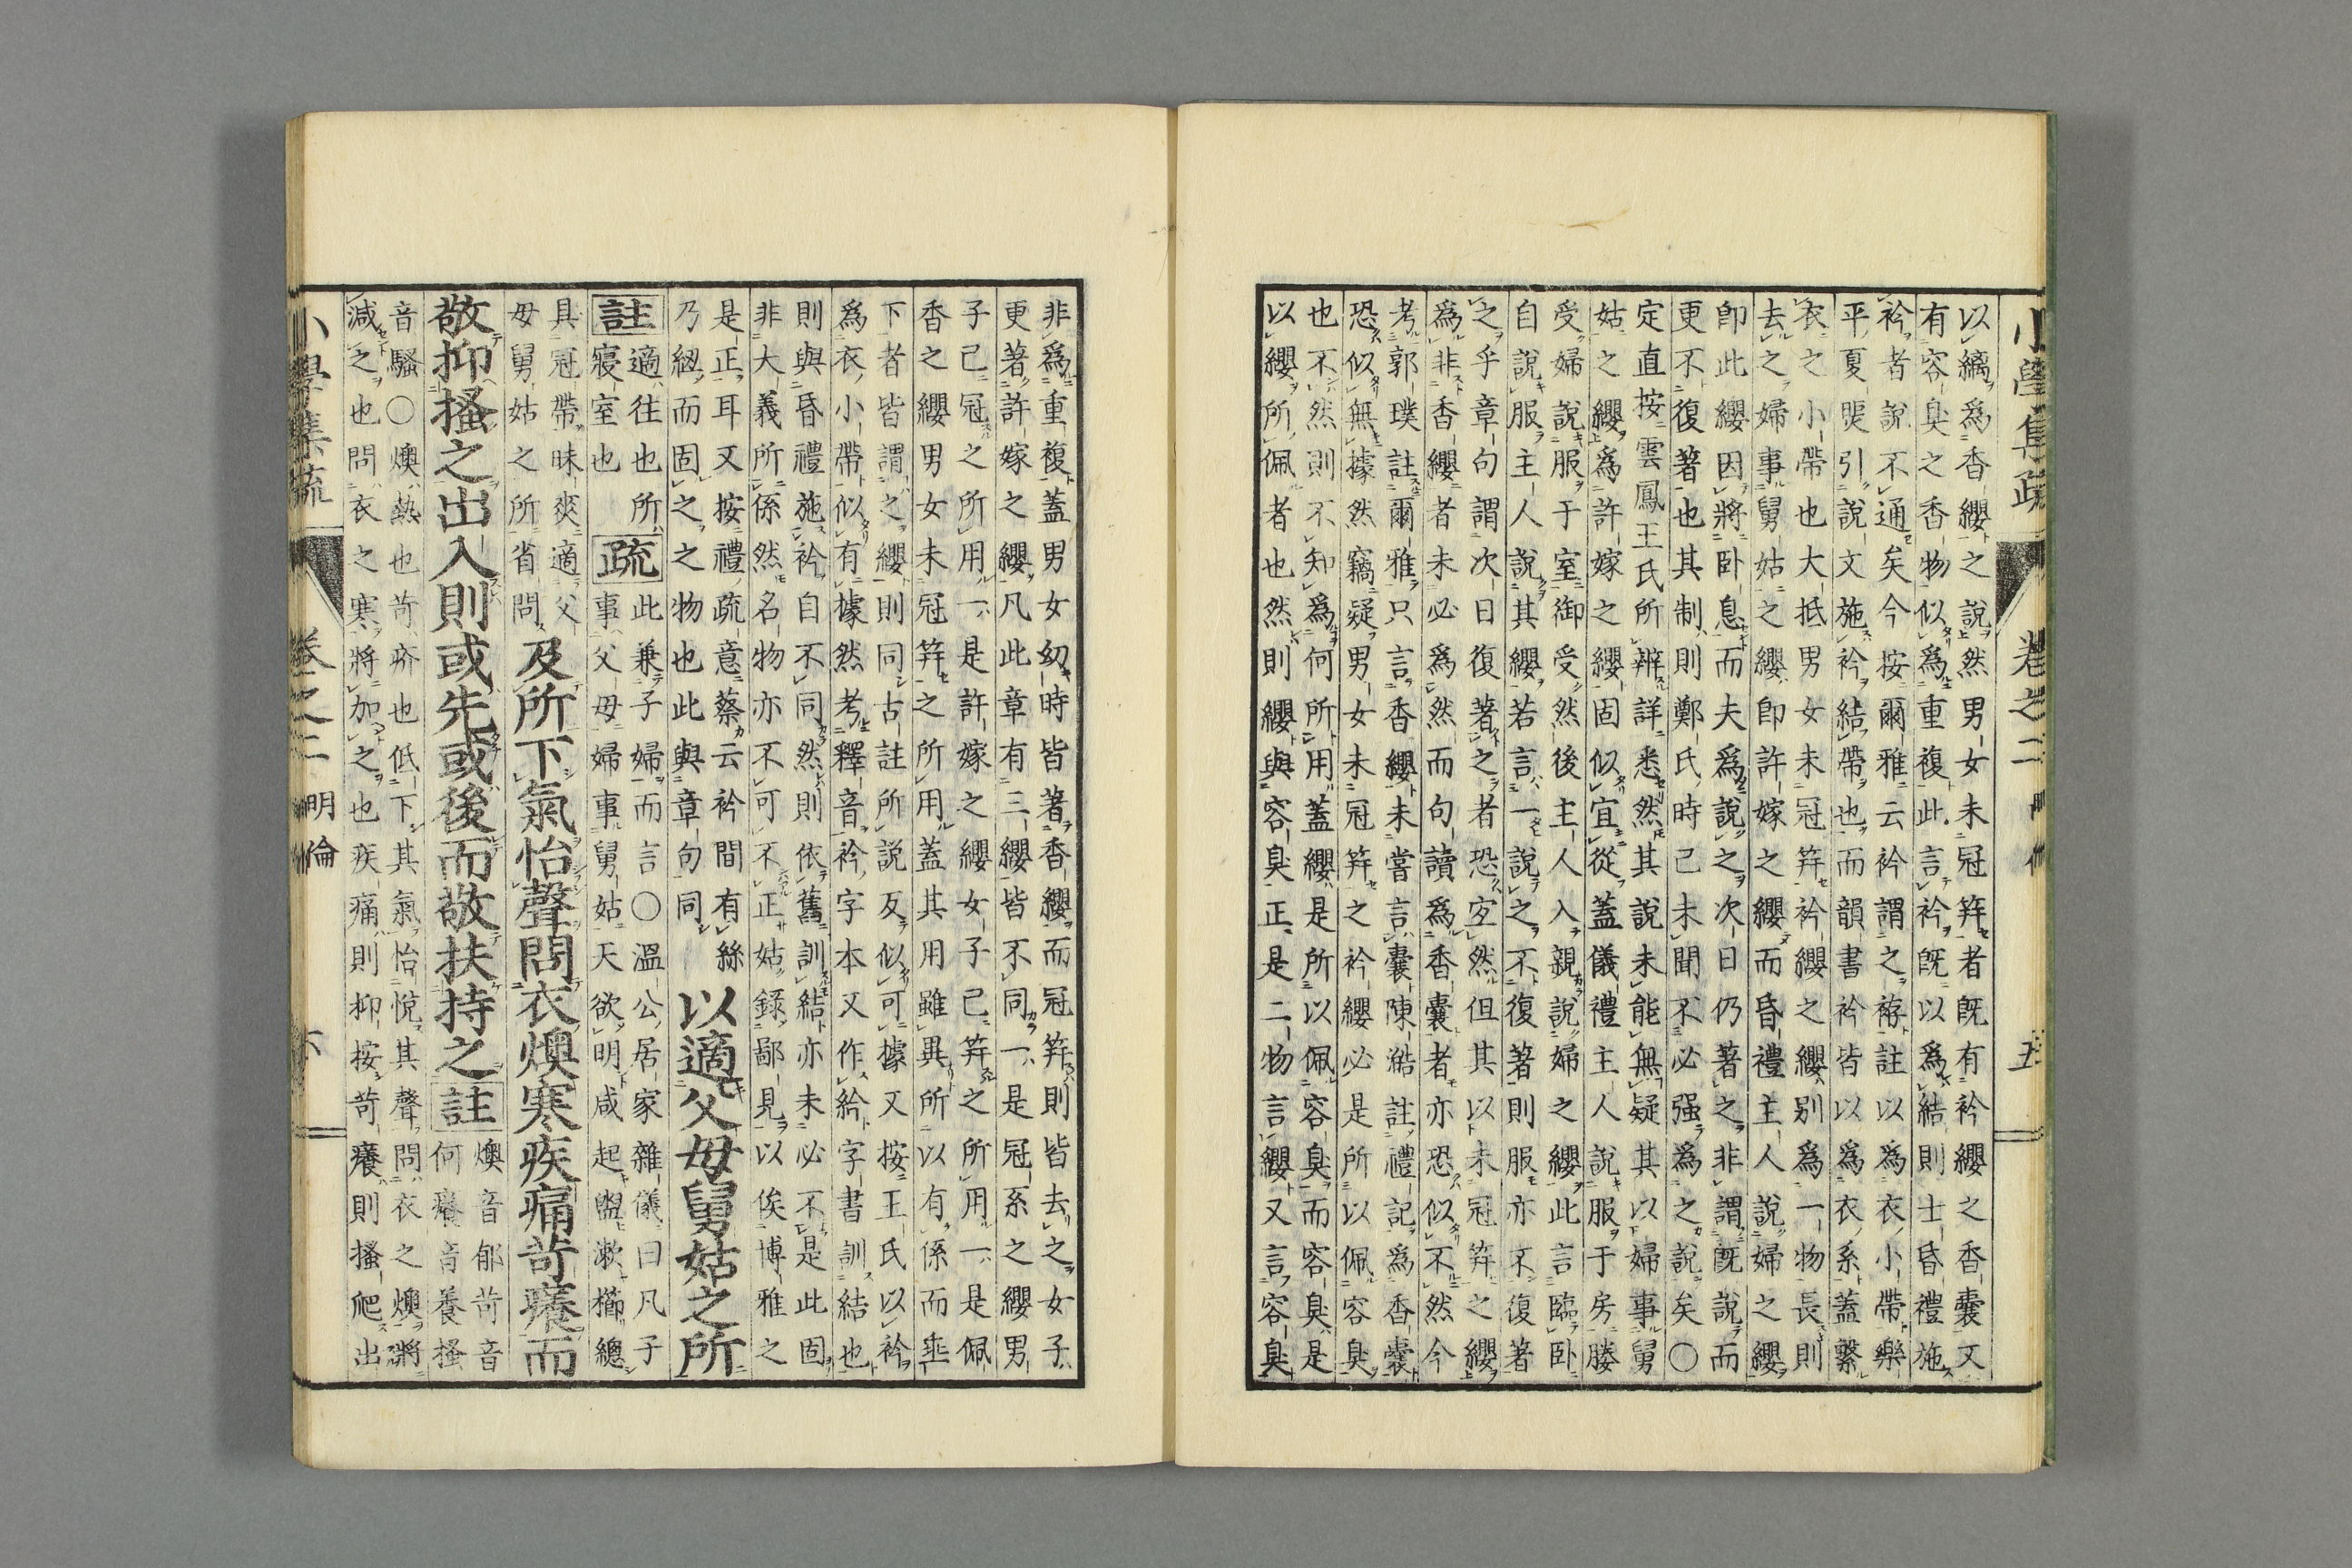 小學集疏 卷之二 明倫 五
以縭爲香纓之說然男女未冠笄者旣有衿纓之香囊又
有容臭之香物似爲重複此言衿旣以爲結則士昏禮施
衿者說不通矣今按爾雅云衿謂之袸註以爲衣小帶樂
平夏煚引說文施衿結帶也而韻書衿皆以爲衣系蓋繫
衣之小帶也大抵男女未冠笄衿纓之纓別爲一物長則
去之婦事舅姑之纓卽許嫁之纓而昏禮主人說婦之纓
卽此纓因將卧息而夫爲說之次日仍著之非謂旣說而
更不復著也其制則鄭氏時已未聞不必强爲之說矣〇
定直按雲鳳王氏所辨詳悉然其說未能無疑其以婦事舅
姑之纓爲許嫁之纓固似宜從蓋儀禮主人說服于房媵
受婦說服于室御受然後主人入親說婦之纓此言臨卧
自說服主人說其纓若言一說之不復著則服亦不復著
之乎章句謂次日復著之者恐定然但其以未冠笄之纓
爲非香纓者未必爲然而句讀爲香囊者亦恐似不然今
考郭璞註爾雅只言香纓未嘗言囊陳澔註禮記爲香囊
恐似無據然竊疑男女未冠笄之衿纓必是所以佩容臭
也不然則不知爲何所用蓋纓是所以佩容臭而容臭是
以纓所佩者也然則纓與容臭正是二物言纓又言容臭
非爲重複蓋男女幼時皆著香纓而冠笄則皆去之女子
更著許嫁之纓凡此章有三纓皆不同一是冠系之纓男
子已冠之所用一是許嫁之纓女子已笄之所用一是佩
香之纓男女未冠笄之所用蓋其用雖異所以有係而垂
下者皆謂之纓則同古註所說反似可據又按王氏以衿
爲衣小帶似有據然考釋音衿字本又作紟字書訓結也
則與昏禮施衿自不同然則依舊訓結亦未必不是此固
非大義所係然名物亦不可不正姑錄鄙見以俟博雅之
是正耳又按禮疏意蔡云衿間有絲
乃綑而固之之物也此與章句同
以適父母舅姑之所
註
適往也所
寢室也
疏
此兼子婦而言〇溫公居家雜儀曰凡子
事父母婦事舅姑天欲明咸起盥漱櫛總
具冠帶昧爽適父
母舅姑之所省問
及所下氣怡聲問衣燠寒疾痛苛癢而
敬抑搔之出入則或先或後而敬扶持之
註
燠音郁苛音
何癢音養搔
音騷〇燠熱也苛疥也低下其氣怡悅其聲問衣之燠將
減之也問衣之寒將加之也疾痛則抑按苛癢則搔爬出
小學集疏 卷之二 明倫 六